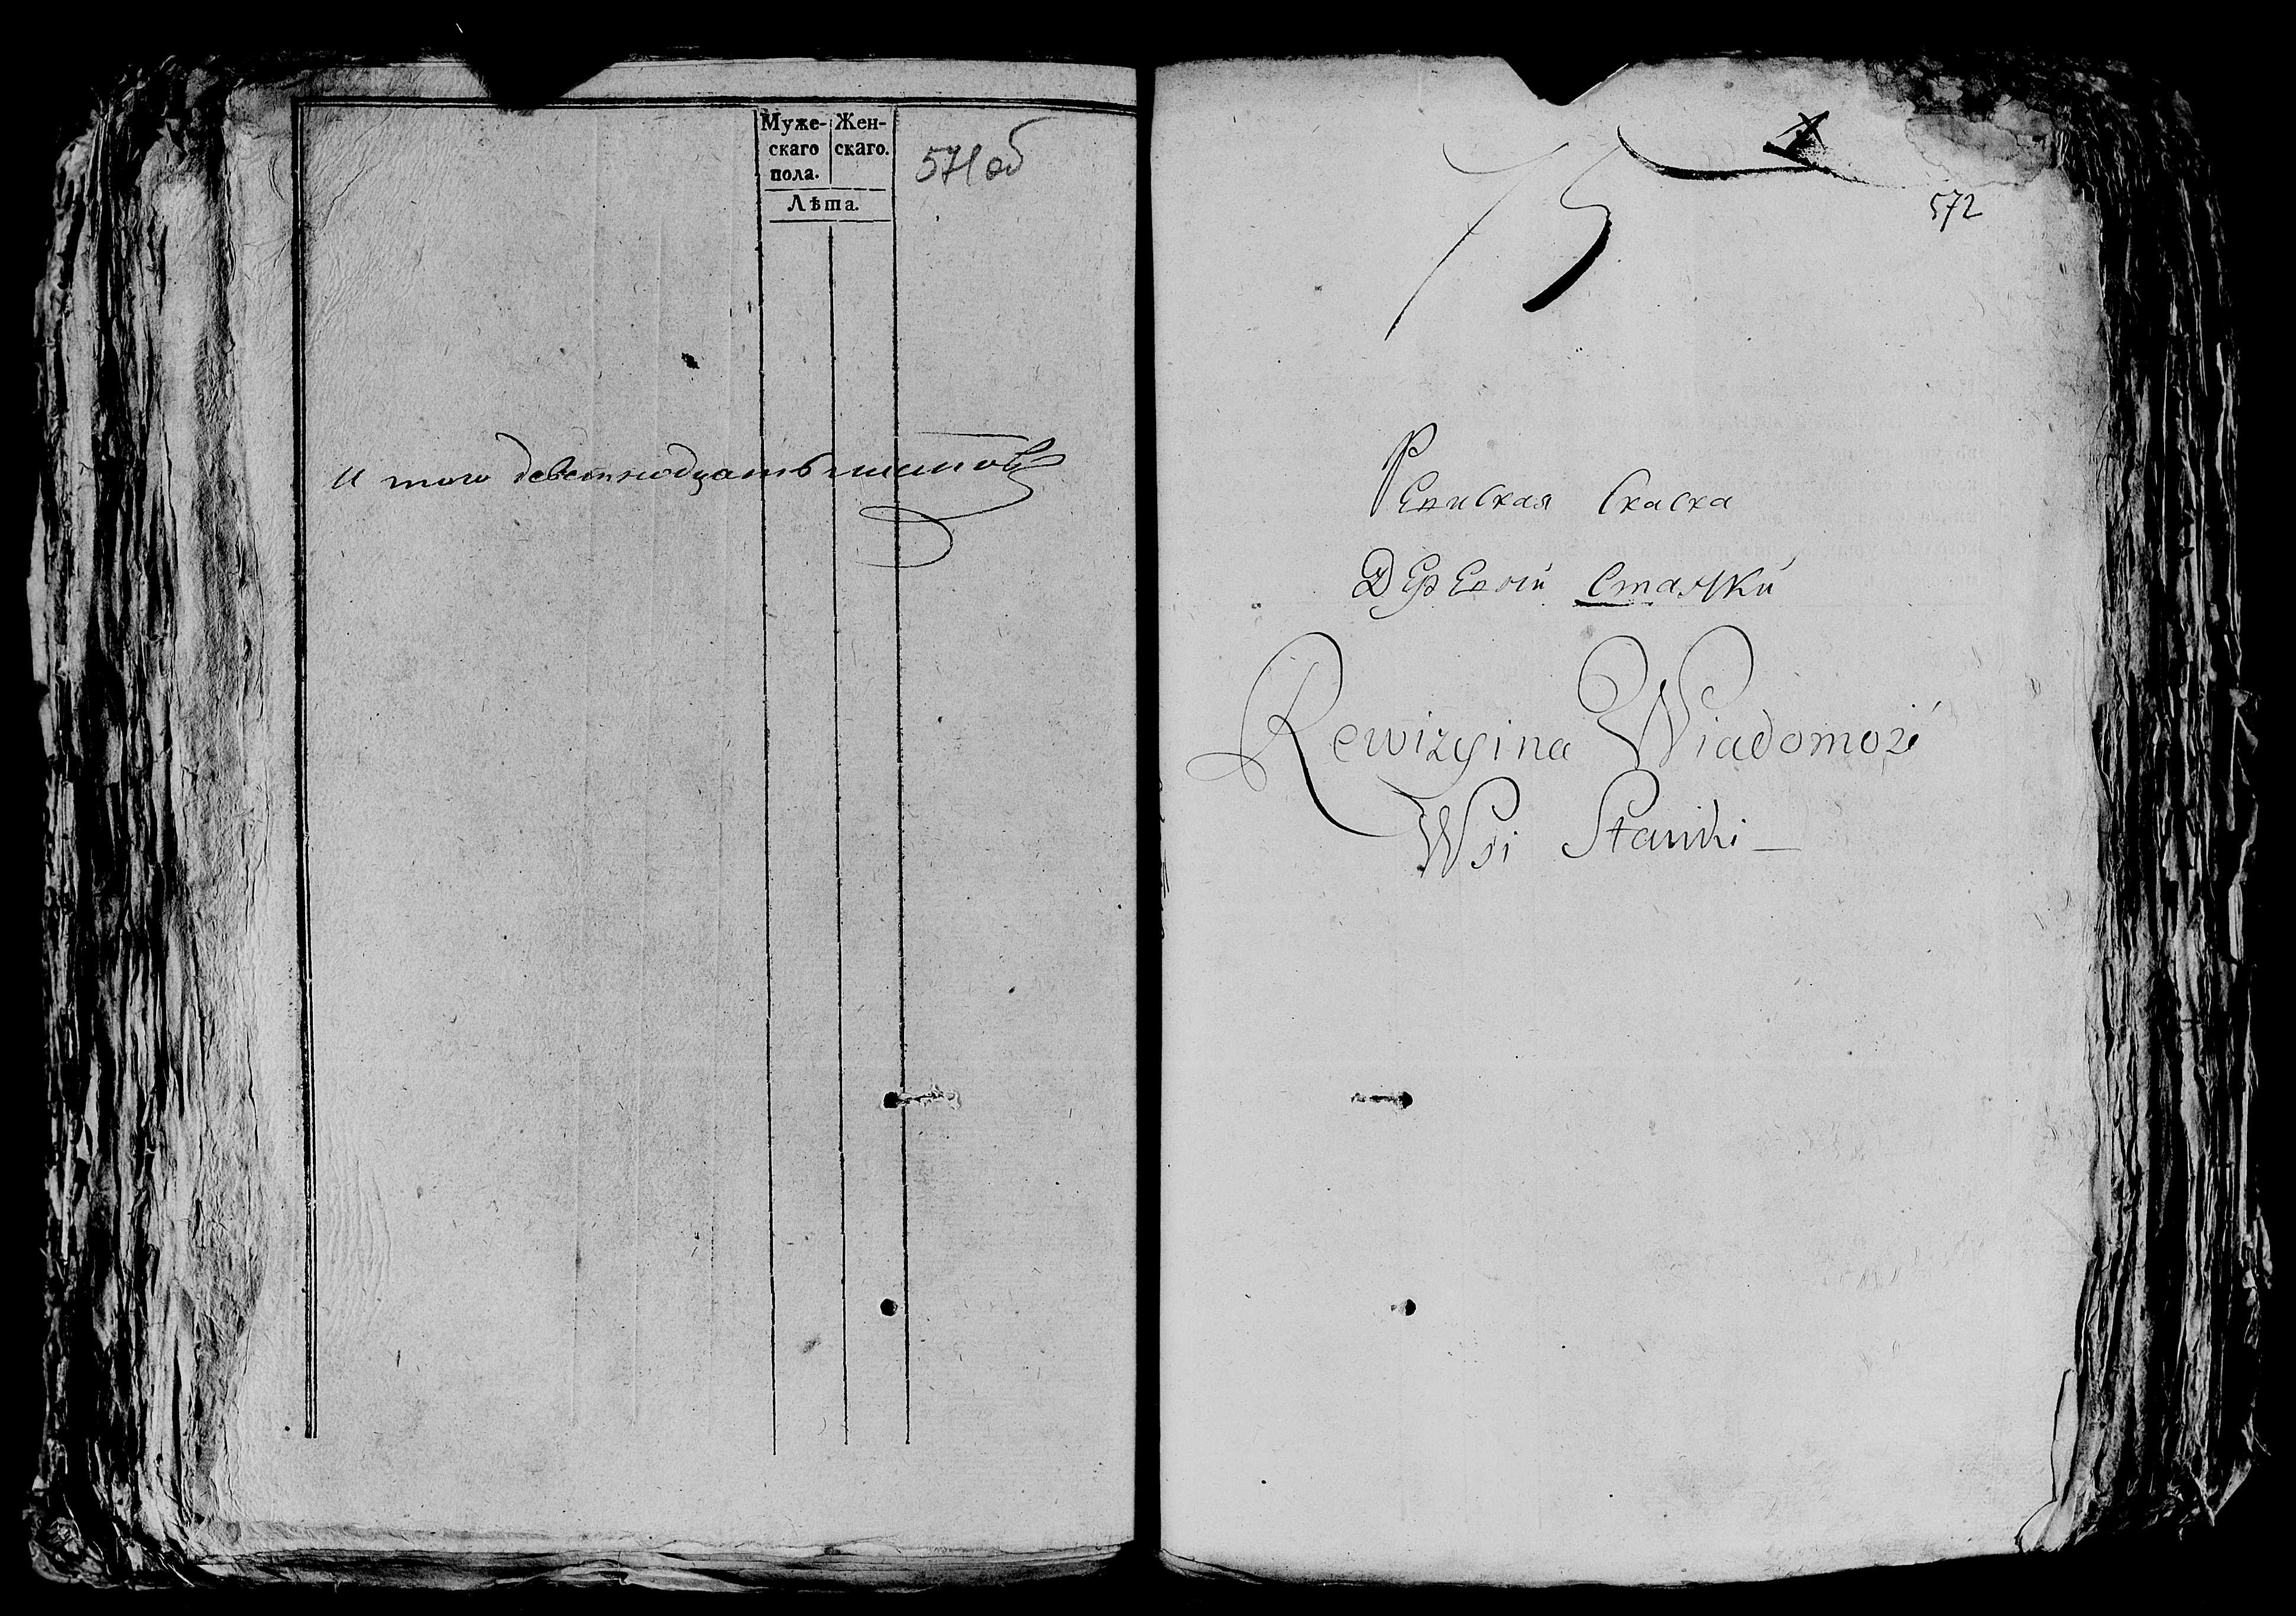 Муже-
скаго
пола.
Жен-
скаго.
Лѣта.
571 об
И того деветнодцать листовъ
75
572
Ревиская Скаска
Деревни Стайки
Rewizyina Wiadomość
Wsi Stawki